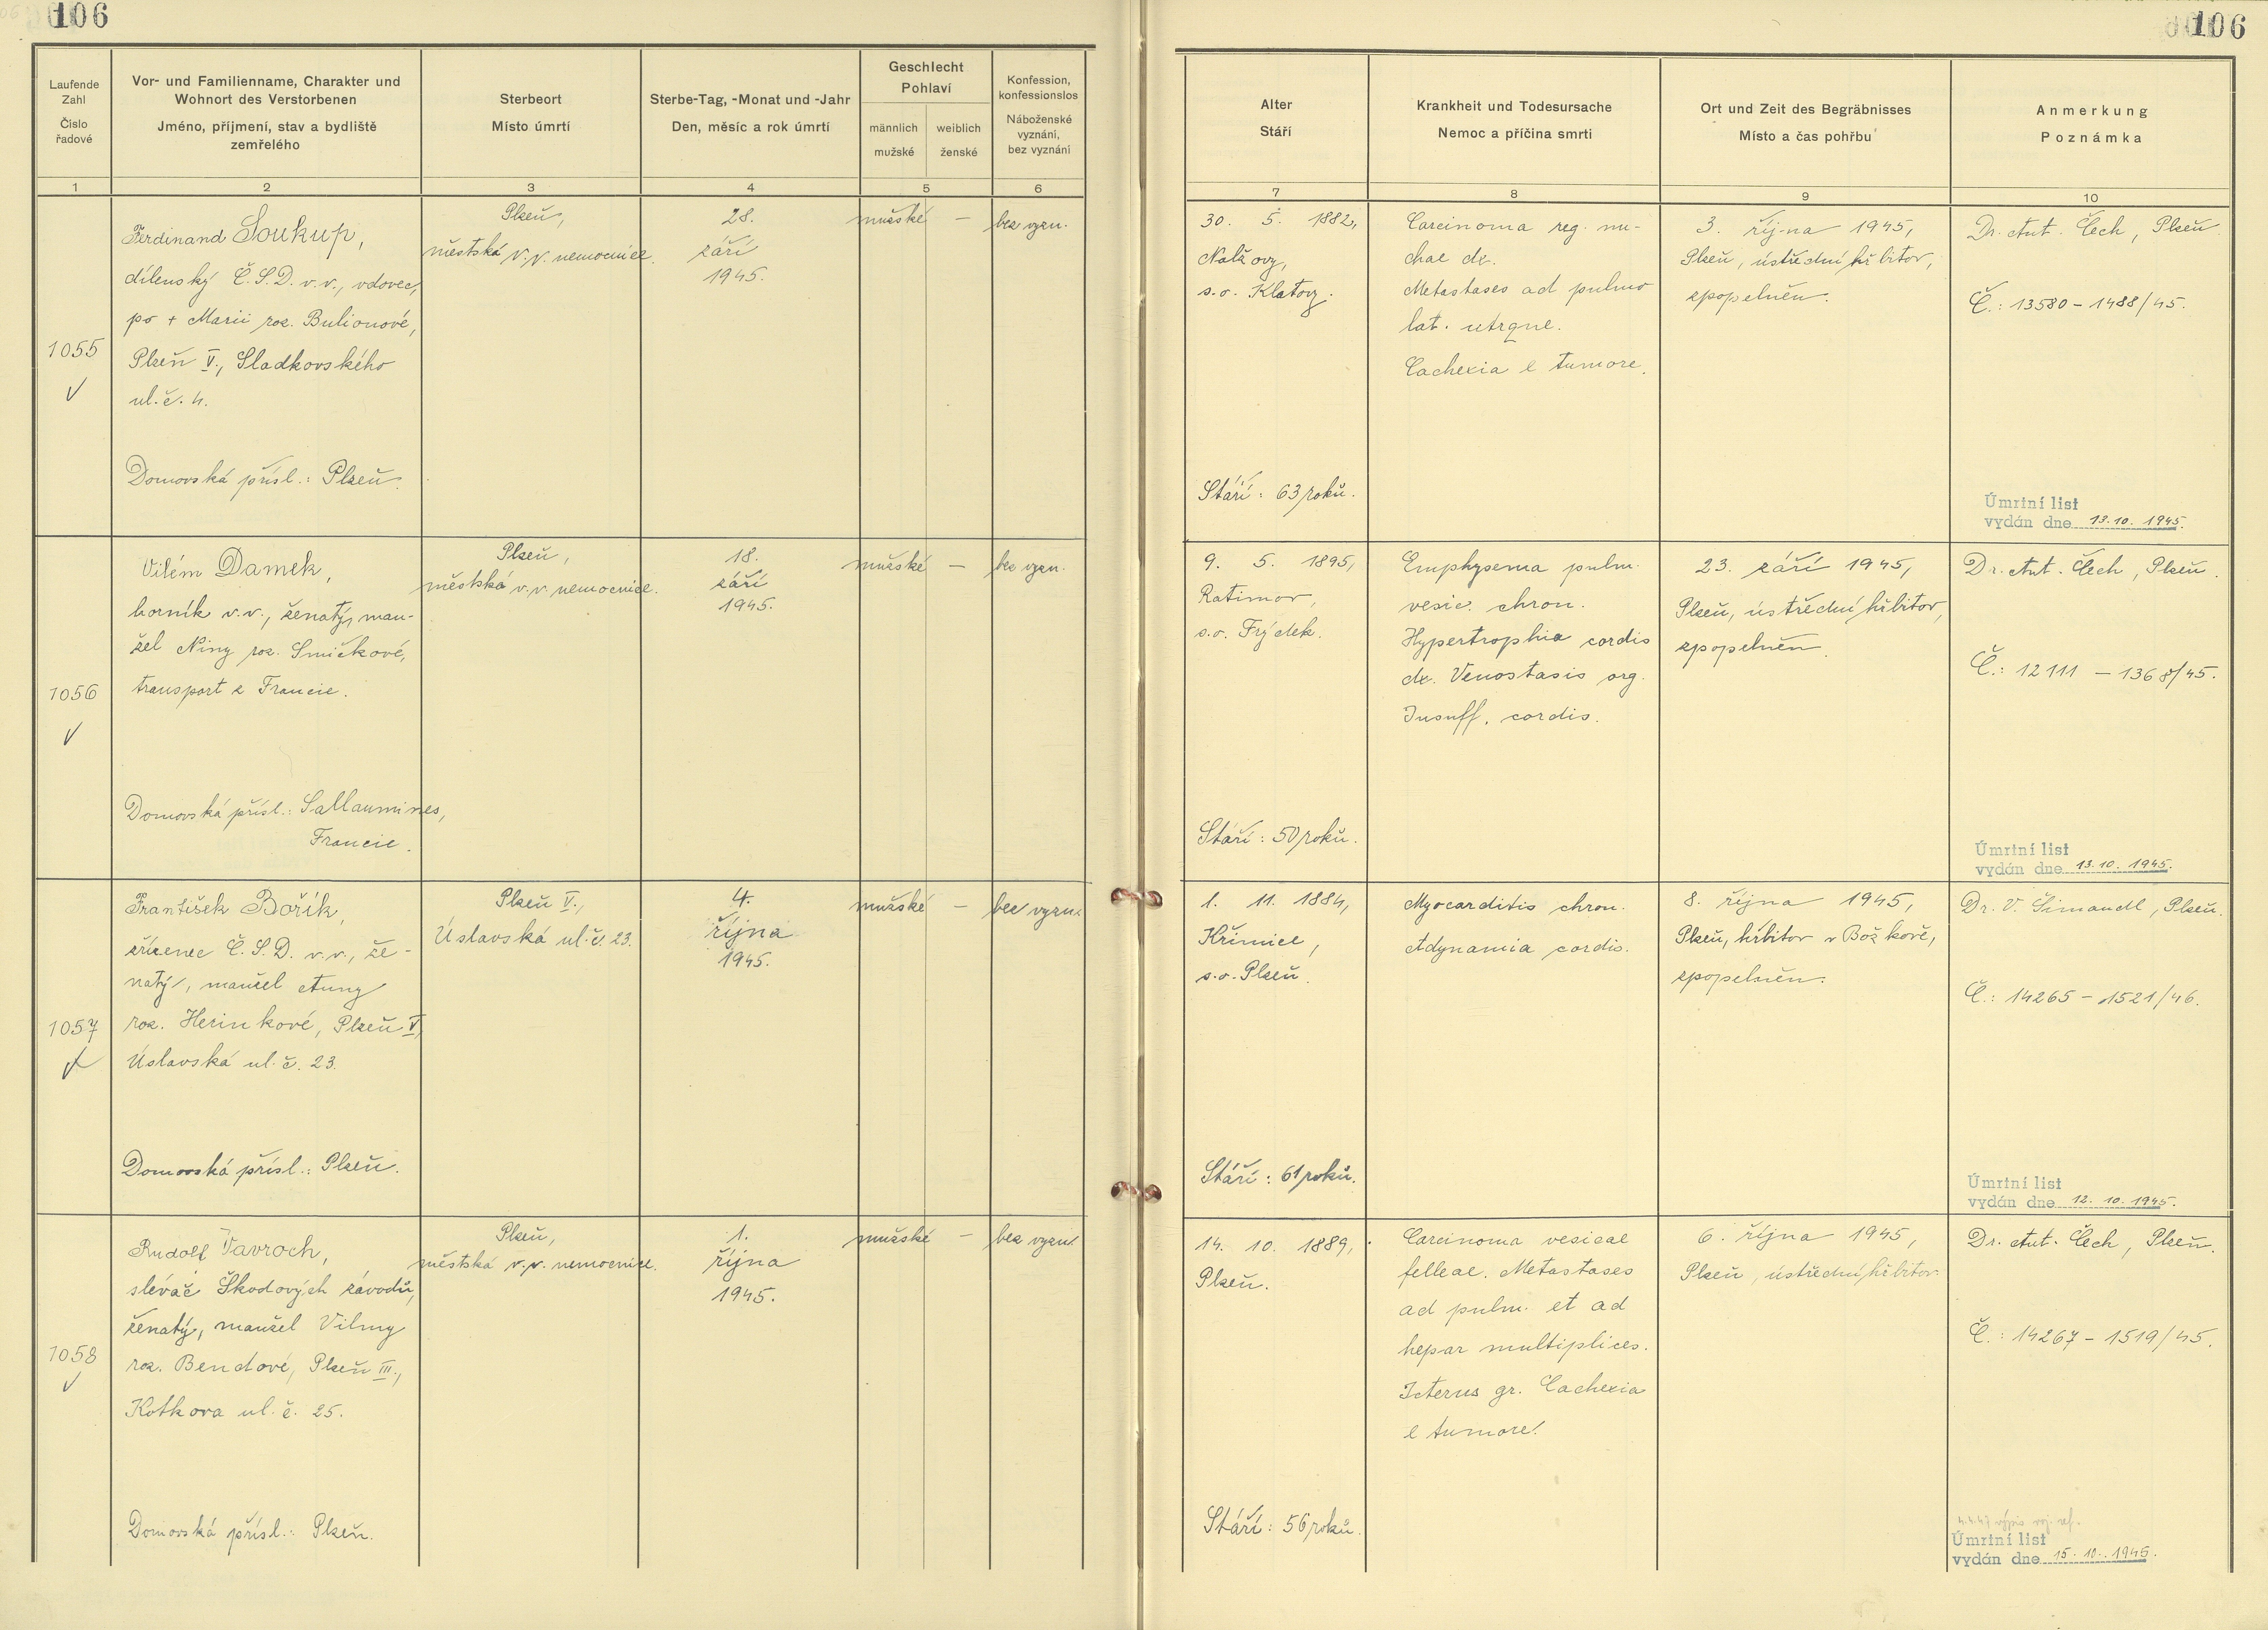 106
106
Laufende
Zahl
Číslo
řadové
Vor- und Familienname, Charakter und
Wohnort des Verstorbenen
Jméno, příjmení, stav a bydliště
zemřelého
Sterbeort
Místo úmrtí
Sterbe-Tag, -Monat und -Jahr
Den, měsíc a rok úmrtí
Geschlecht
Pohlaví
männlich
mužské
weiblich
ženské
Konfession,
konfessionslos
Náboženské
vyznání,
bez vyznání
Alter
Stáří
Krankheit und Todesursache
Nemoc a příčina smrti
Ort und Zeit des Begräbnisses
Místo a čas pohřbu
Anmerkung
Poznámka
1
2
3
4
5
6
7
8
9
10
1055
Ferdinand Soukup,
dílenský Č.S.D. v.v., vdovec,
po + Marii roz. Bulionové,
Plzeň V., Sladkovského
ul. č. 4.
Domovská přísl.: Plzeň.
Plzeň,
městská v.v. nemocnice.
28.
září
1945.
mužské —
bez vyzn.
30. 5. 1882,
Nalžovy,
s.o. Klatovy.
Stáří: 63 roků.
Carcinoma reg. nu-
chae dx.
Metastases ad pulmo
lat. utrque.
Cachexia e tumore.
3. října 1945,
Plzeň, ústřední hřbitov,
zpopelněn.
Dr. Ant. Čech, Plzeň.
Č.: 13580 - 1488/45.
Úmrtní list
vydán dne 13.10. 1945.
1056
Vilém Damek,
horník v.v., ženatý, man-
žel Niny roz. Smičkové,
transport z Francie.
Domovská přísl.: Sallaumines,
Francie.
Plzeň,
městská v.v. nemocnice.
18.
září
1945.
mužské —
bez vyzn.
9. 5. 1895,
Ratimov,
s.o. Frýdek.
Stáří: 50 roků.
Emphysema pulm.
vesic. chron.
Hypertrophia cordis
dx. Venostasis org.
Insuff. cordis.
23. září 1945,
Plzeň, ústřední hřbitov,
zpopelněn.
Dr. Ant. Čech, Plzeň.
Č.: 12111 - 1368/45.
Úmrtní list
vydán dne 13.10. 1945.
1057
František Bořík,
zřízenec Č.S.D. v.v., že-
natý, manžel Anny
roz. Herinkové, Plzeň V,
Úslavská ul. č. 23.
Domovská přísl.: Plzeň.
Plzeň V.,
Úslavská ul. č. 23.
4.
října
1945.
mužské —
bez vyzn.
1. 11. 1884,
Křimice,
s.o. Plzeň.
Stáří: 61 roků.
Myocarditis chron.
Adynamia cordis.
8. října 1945,
Plzeň, hřbitov v Božkově,
zpopelněn.
Dr. V. Šimandl, Plzeň.
Č.: 14265 - 1521/46.
Úmrtní list
vydán dne 12. 10. 1945.
1058
Rudolf Vavroch,
slévač Škodových závodů,
ženatý, manžel Vilmy
roz. Bendové, Plzeň III.,
Kotkova ul. č. 25.
Domovská přísl.: Plzeň.
Plzeň,
městská v.v. nemocnice.
1.
října
1945.
mužské —
bez vyzn.
14. 10. 1889,
Plzeň.
Stáří: 56 roků.
Carcinoma vesicae
felleae. Metastases
ad pulm. et ad
hepar multiplices.
Icterus gr. Cachexia
e tumore.
6. října 1945,
Plzeň, ústřední hřbitov.
Dr. Ant. Čech, Plzeň.
Č.: 14267 - 1519/45.
4.4.47 výpis
Úmrtní list
vydán dne 15. 10. 1945.